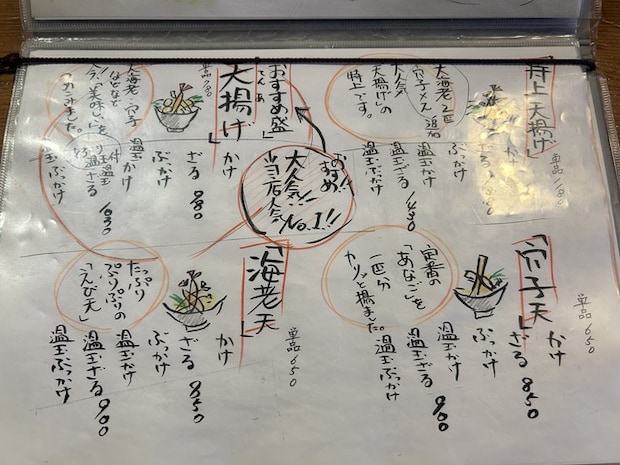 「特上天揚げ」
大海老2匹
穴子さん 追加
大人気
天揚げの
特上です。
かけ
ざる
ぶっかけ
温玉かけ
温玉ざる 1430
温玉ぶっかけ
おすすめ盛
「天揚げ」
大海老・穴子
などなど
今、「美味しい」を
つめこみました。
かけ
ざる 980
ぶっかけ
温玉かけ
温玉ざる 1030
温玉ぶっかけ
おすすめ!
大人気!!
当店人気
No.1!!
「穴子天」
単品650
定番の
「あなご」を
一匹分
カリッと揚ました。
かけ
ざる 850
ぶっかけ
温玉かけ
温玉ざる 900
温玉ぶっかけ
「海老天」
単品650
たっぷり
ぷりぷりの
「えび天」
かけ
ざる 850
ぶっかけ
温玉かけ
温玉ざる 900
温玉ぶっかけ